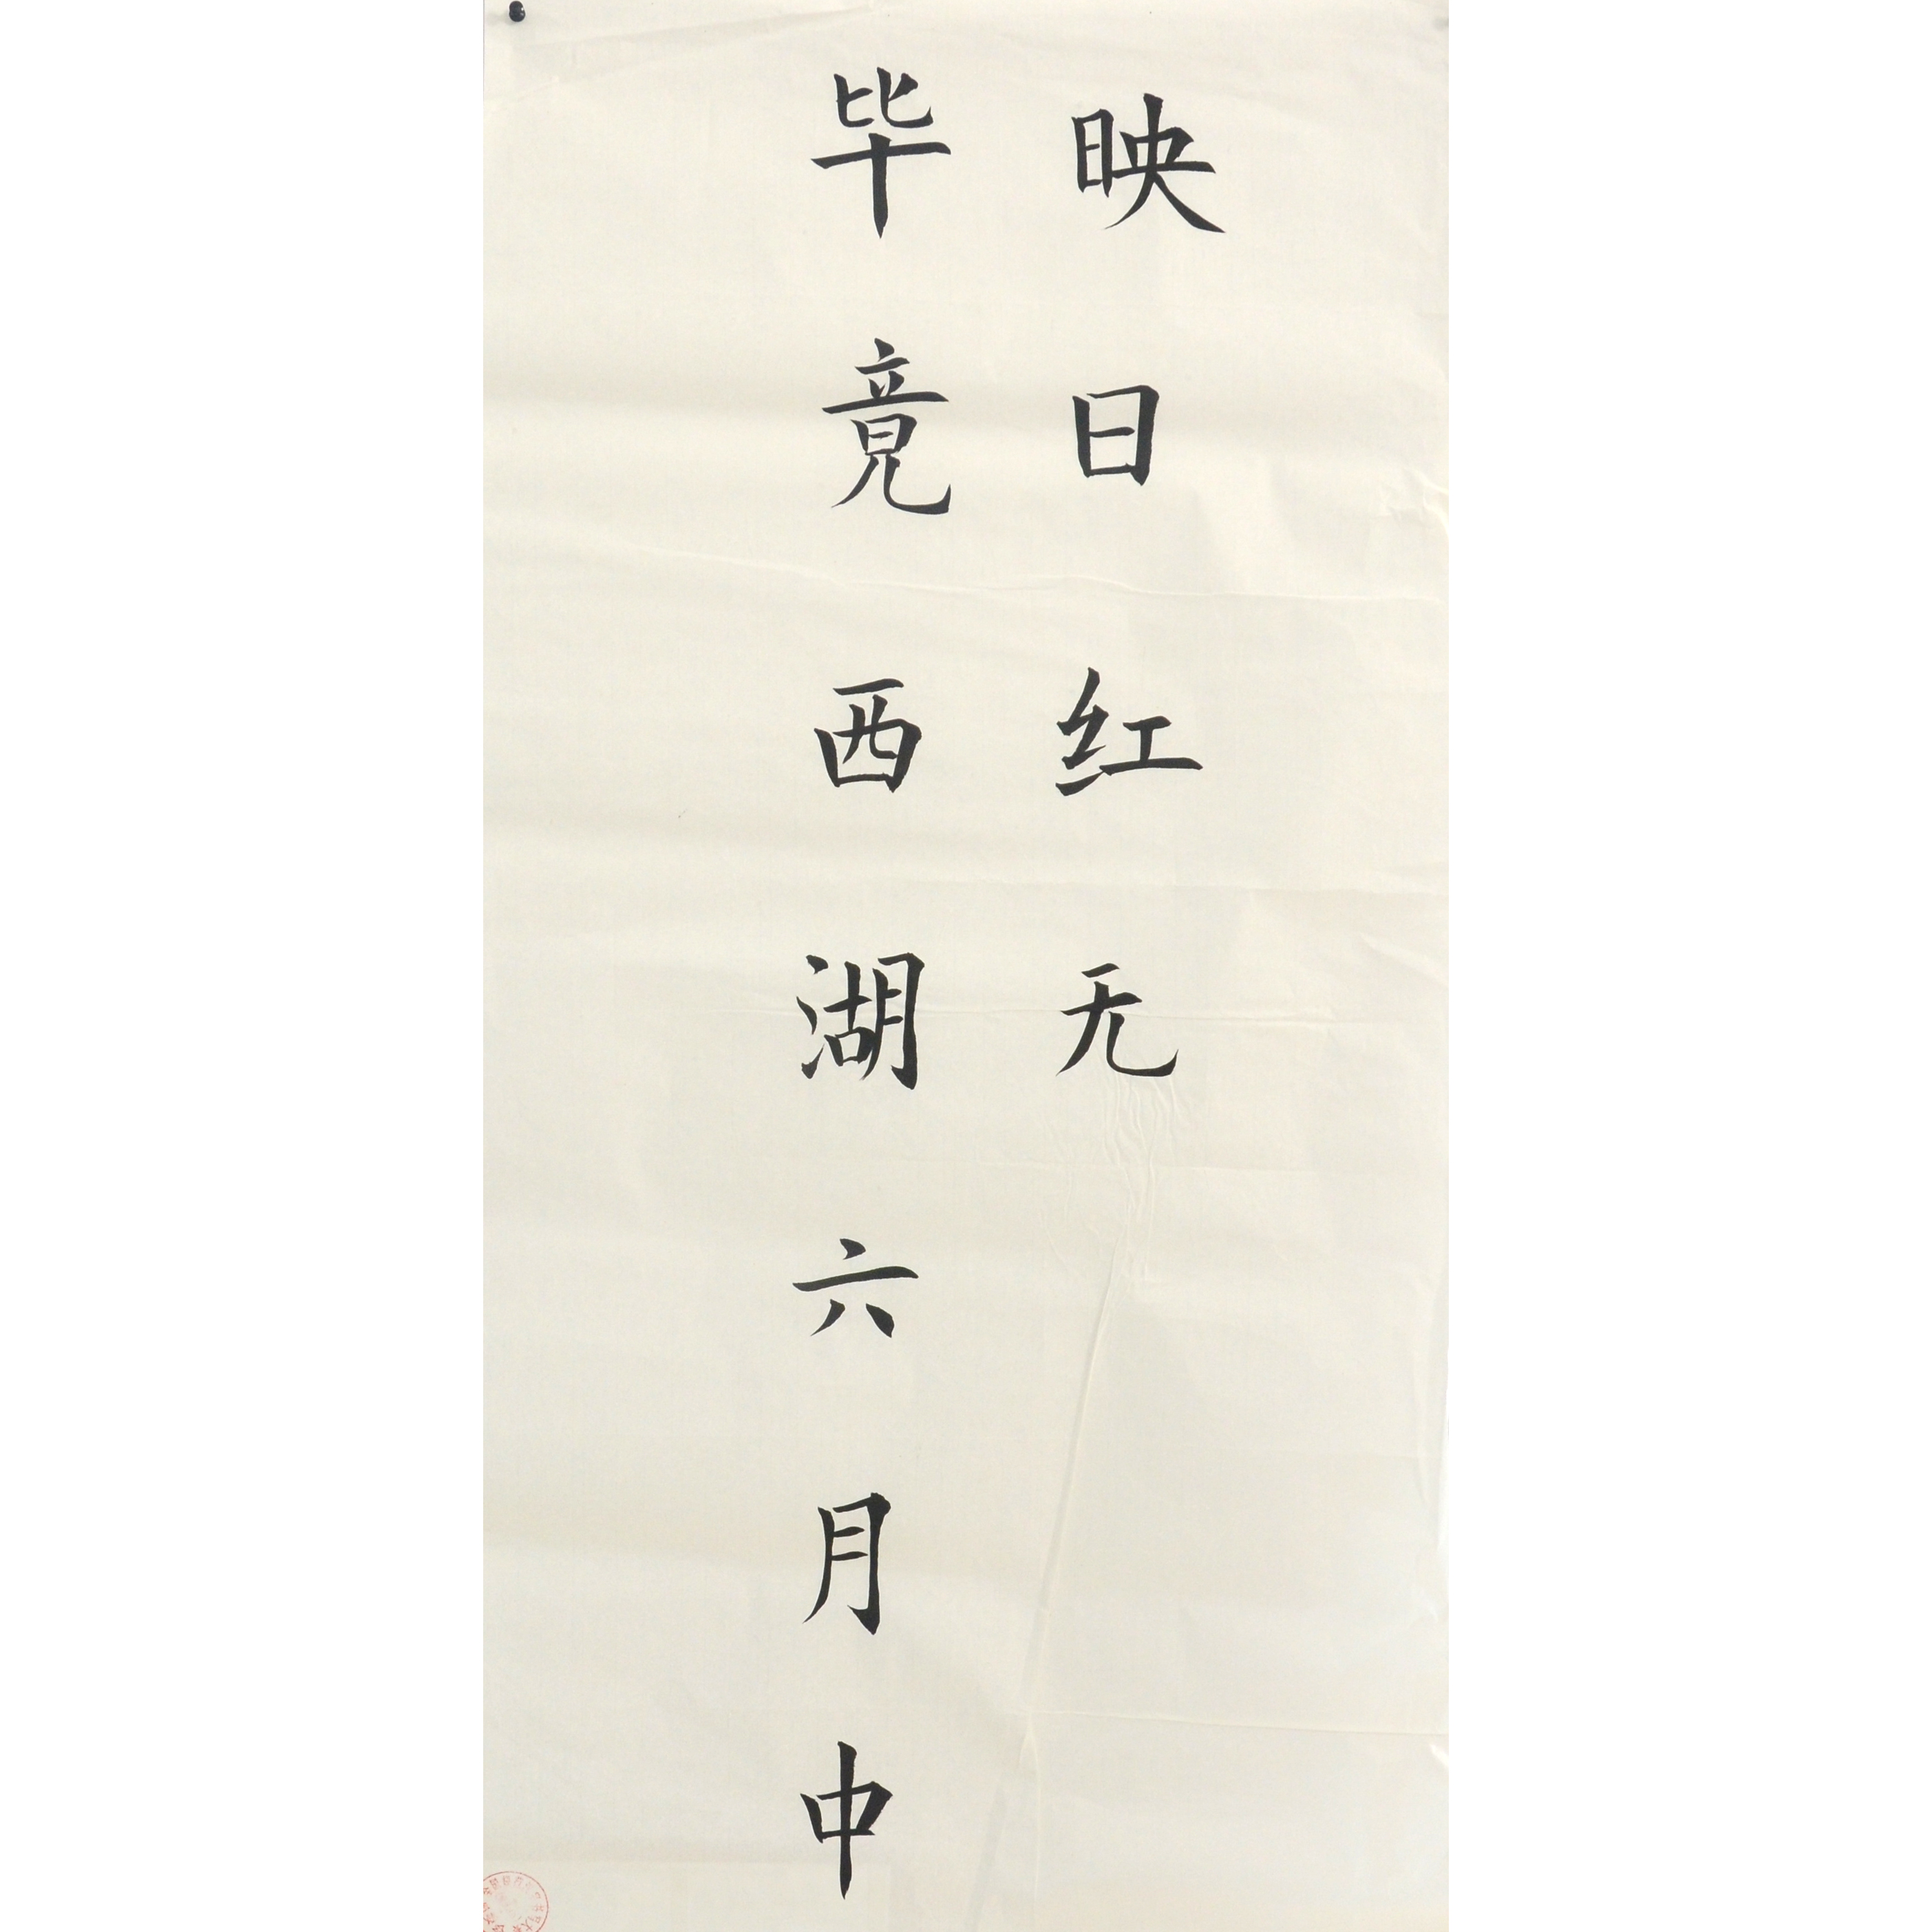 映日红无
毕竟西湖六月中